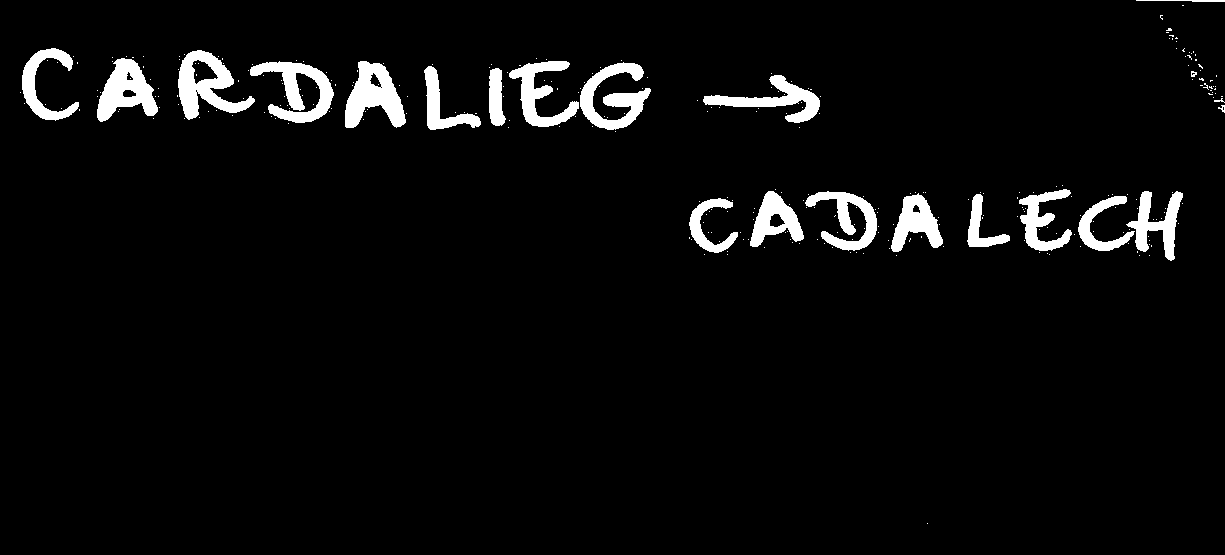 CARDALIEG →
CADALECH